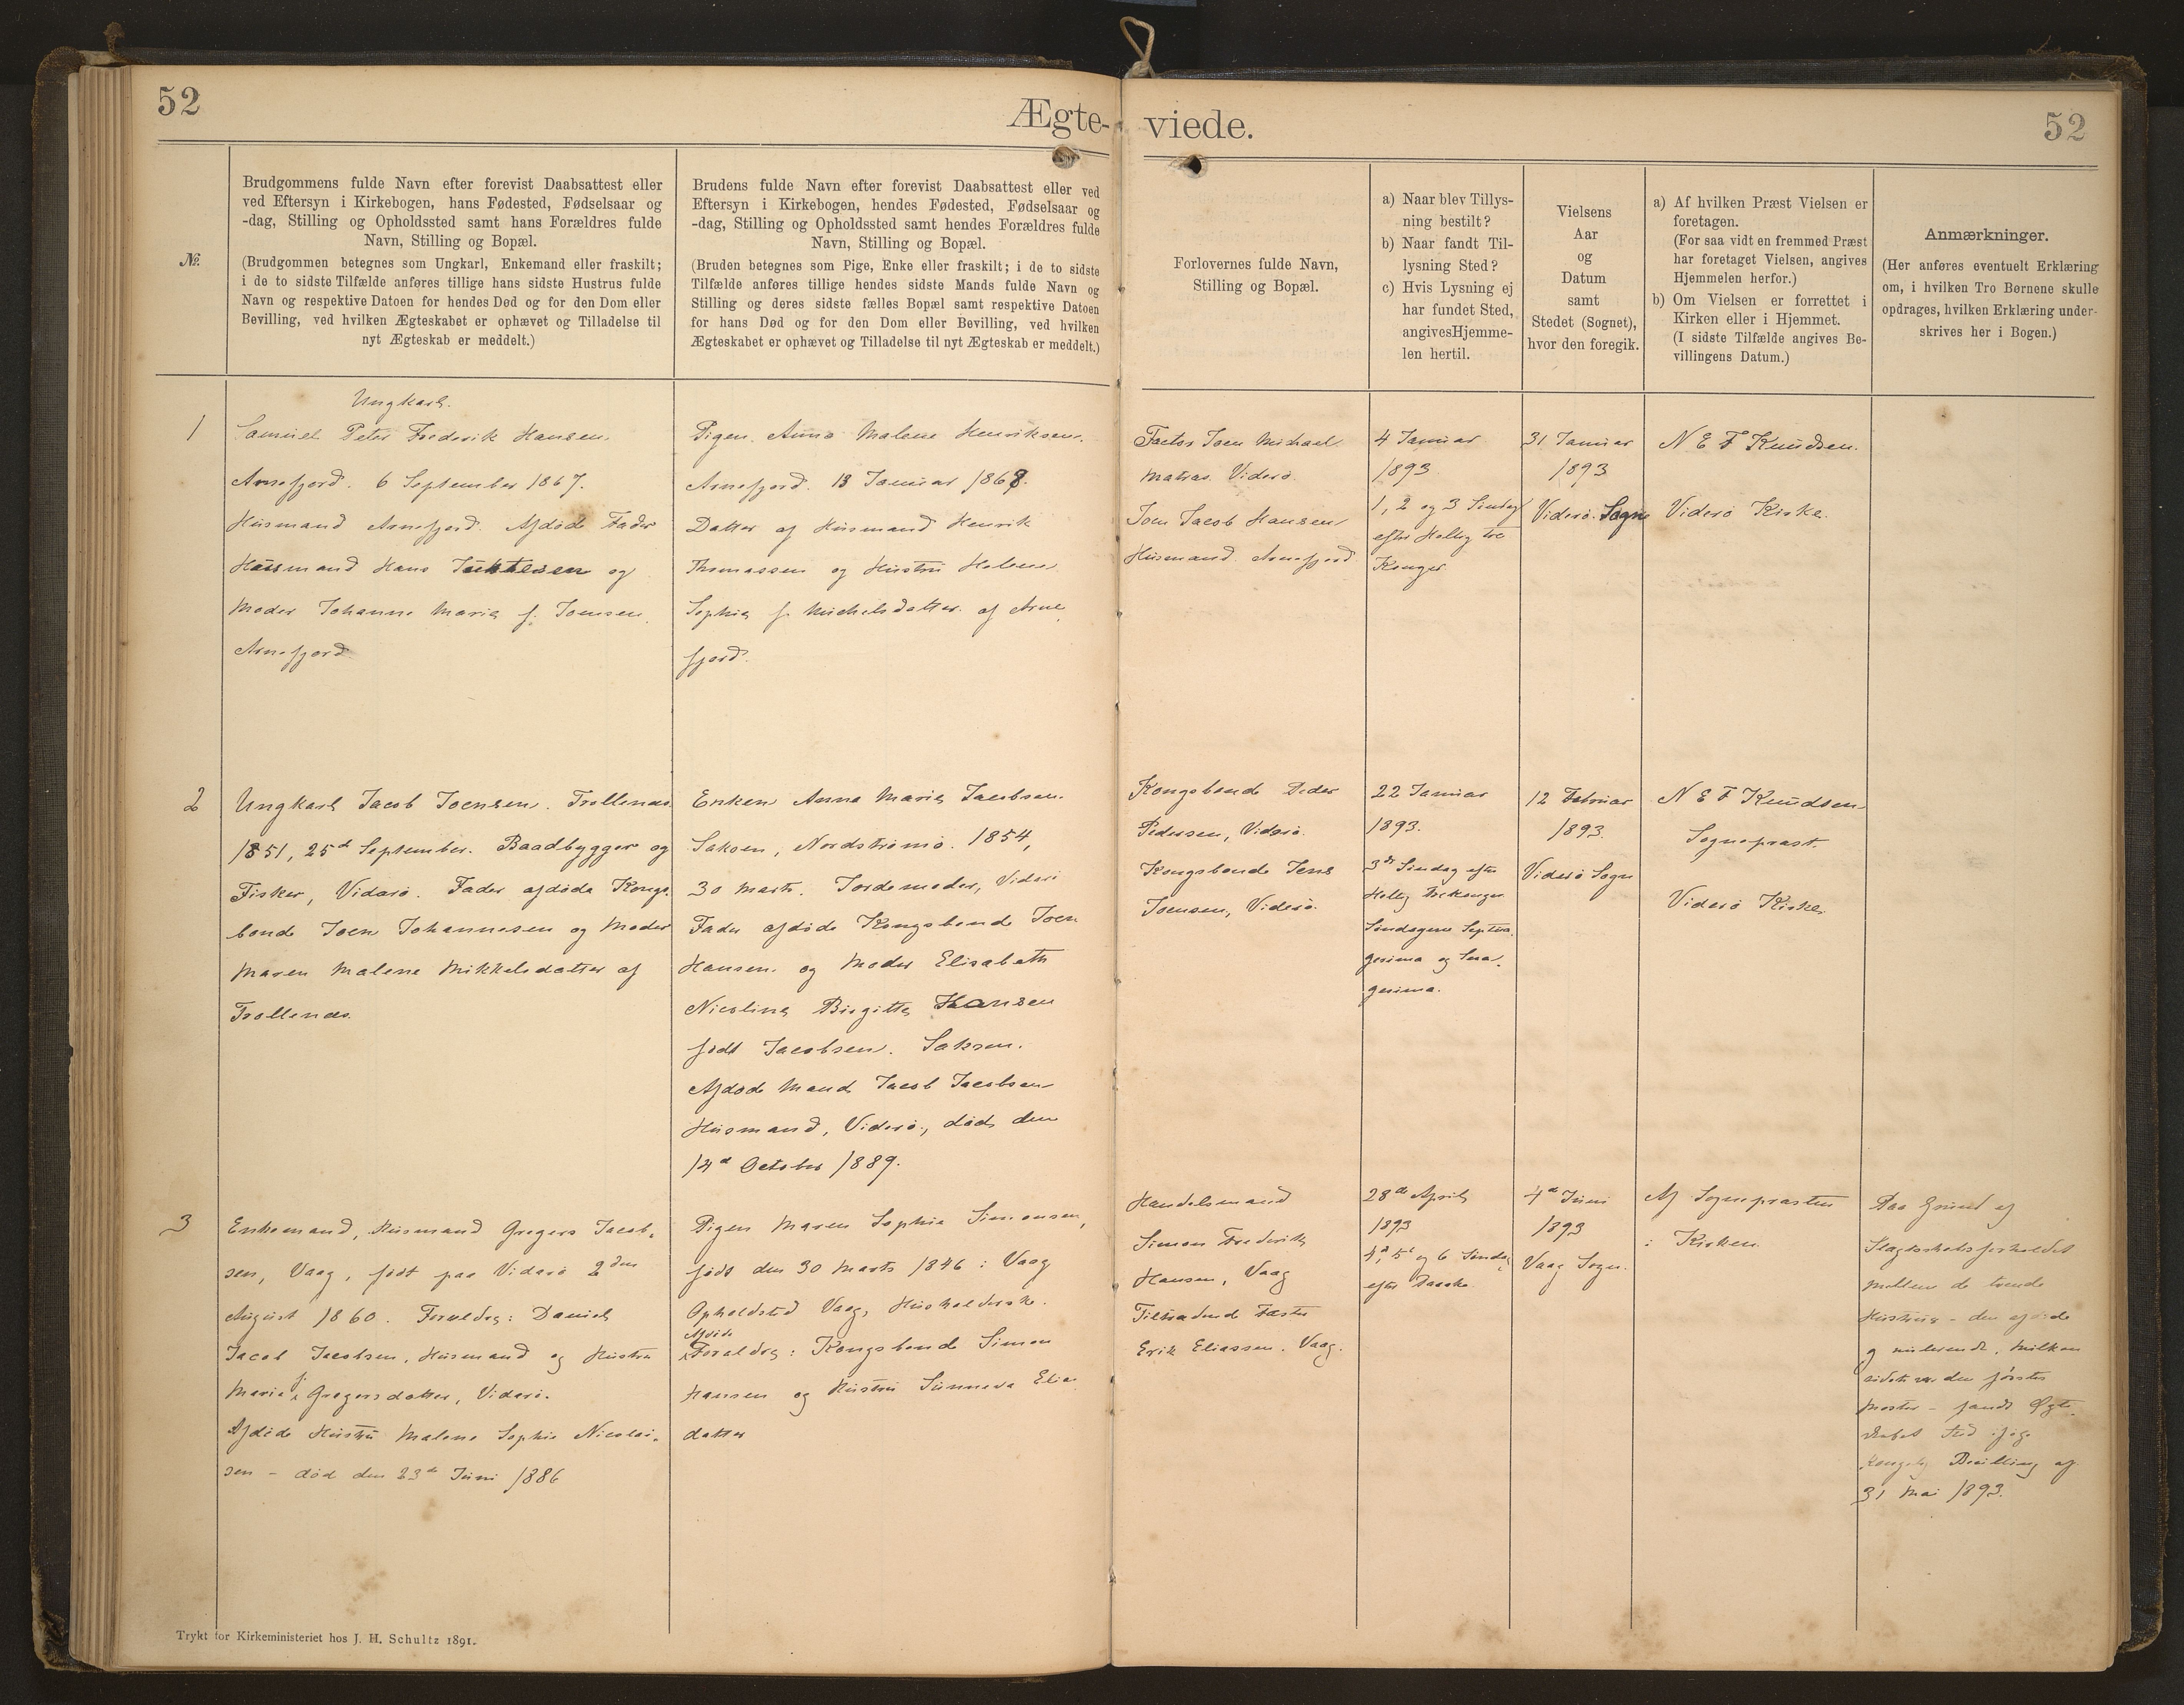 52
Ægte-
viede.
52
№.
Brudgommens fulde Navn efter forevist Daabsattest eller
ved Eftersyn i Kirkebogen, hans Fødested, Fødselsaar og
-dag, Stilling og Opholdssted samt hans Forældres fulde
Navn, Stilling og Bopæl.
(Brudgommen betegnes som Ungkarl, Enkemand eller fraskilt;
i de to sidste Tilfælde anføres tillige hans sidste Hustrus fulde
Navn og respektive Datoen for hendes Død og for den Dom eller
Bevilling, ved hvilken Ægteskabet er ophævet og Tilladelse til
nyt Ægteskab er meddelt.)
Brudens fulde Navn efter forevist Daabsattest eller ved
Eftersyn i Kirkebogen, hendes Fødested, Fødselsaar og
-dag, Stilling og Opholdssted samt hendes Forældres fulde
Navn, Stilling og Bopæl.
(Bruden betegnes som Pige, Enke eller fraskilt; i de to sidste
Tilfælde anføres tillige hendes sidste Mands fulde Navn og
Stilling og deres sidste fælles Bopæl samt respektive Datoen
for hans Død og for den Dom eller Bevilling, ved hvilken
Ægteskabet er ophævet og Tilladelse til nyt Ægteskab er meddelt.)
Forlovernes fulde Navn,
Stilling og Bopæl.
a) Naar blev Tillys-
ning bestilt?
b) Naar fandt Til-
lysning Sted?
c) Hvis Lysning ej
har fundet Sted,
angivesHjemme-
len hertil.
Vielsens
Aar
og
Datum
samt
Stedet (Sognet),
hvor den foregik.
a) Af hvilken Præst Vielsen er
foretagen.
(For saa vidt en fremmed Præst
har foretaget Vielsen, angives
Hjemmelen herfor.)
b) Om Vielsen er forrettet i
Kirken eller i Hjemmet.
(I sidste Tilfælde angives Be-
villingens Datum.)
Anmærkninger.
(Her anføres eventuelt Erklæring
om, i hvilken Tro Børnene skulle
opdrages, hvilken Erklæring under-
skrives her i Bogen.)
1
Ungkarl.
Samuel Peter Frederik Hansen.
Arnefjord. 6 September 1867.
Husmand Arnefjord. Afdøde Fader
Husmand Hans og
Moder Johanne Maria f. Joensen,
Arnefjord
Pigen Anna Malene Henriksen.
Arnefjord. 13 Januar 1868.
Datter af Husmand Henrik
Thomassen og Hustru Helene
Sophia f. Michelsdatter. af Arne
fjord.
Factor Joen Michael
Matras. Viderø.
Joen Jacob Hansen
Husmand Arnefjord
4 Januar
1893
1, 2 og 3 Søndag
efter Hellig tre
Konger
31 Januar
1893
Viderø. Sogn
N E F Knudsen.
Viderø Kirke.
2
Ungkarl Jacob Joensen. Trøllenæs
1851, 25de September. Baadbygger og
Fisker, Viderø. Fader afdøde Kongs
bonde Joen Johannesen og Moder
Maren Malene Mikkelsdatter af
Trøllenæs.
Enken Anna Maria Jacobsen.
Saksen, Nordstrømø. 1854,
30 Marts. Jordemoder, Viderø
Fader afdøde Kongsbonde Joen
Hansen. og Moder Elisabeth
Nicolina Birgitta Hansen
født Jacobsen. Saksen.
Afdød Mand Jacob Jacobsen
Husmand, Viderø, døde den
14de October 1889.
Kongsbonde Peder
Pedersen, Viderø.
Kongsbonde Jens
Joensen, Viderø.
22 Januar
1893.
3de Søndag efter
Hellig trekonger
Søndagene Septua
gesima og Sexa
gesima.
12 Februar
1893.
Viderø Sogn
N E F Knudsen
Sognepræst.
Viderø Kirke
3
Enkemand, Husmand Gregers Jacob-
sen, Vaag, født paa Viderø 2den
August 1860. Forældre: Daniel
Jacob Jacobsen, Husmand og Hustru
Maria f. Gregersdatter, Viderø.
Afdøde Hustru Malene Sophie Nicolai-
sen - død den 23de Juni 1886
Pigen Maren Sophie Simonsen,
født den 30 Marts 1846 i Vaag
Opholdsted Vaag, Husholderske.
Afdøde
Forældre: Kongsbonde Simon
Hansen og Hustru Sunneva Elias
datter
Handelsmand
Simon Frederik
Hansen, Vaag
Tiltrædend Fæster
Erik Eliassen. Vaag.
28de April
1893
4de, 5te og 6 Søndag
efter Paaske
4de Juni
1893
Vaag Sogn.
Af Sognepræsten
i Kirken.
Paa Grund af
Slægtskabsforholdet
mellem de tvende
Hustruer - den afdøde
og nulevende, hvilken
sidste var den førstes
Moster - fandt Ægte
skabet Sted ifølge
Kongelig Bevilling af
31 Mai 1893.
Trykt for Kirkeministeriet hos J. H. Schultz 1891.